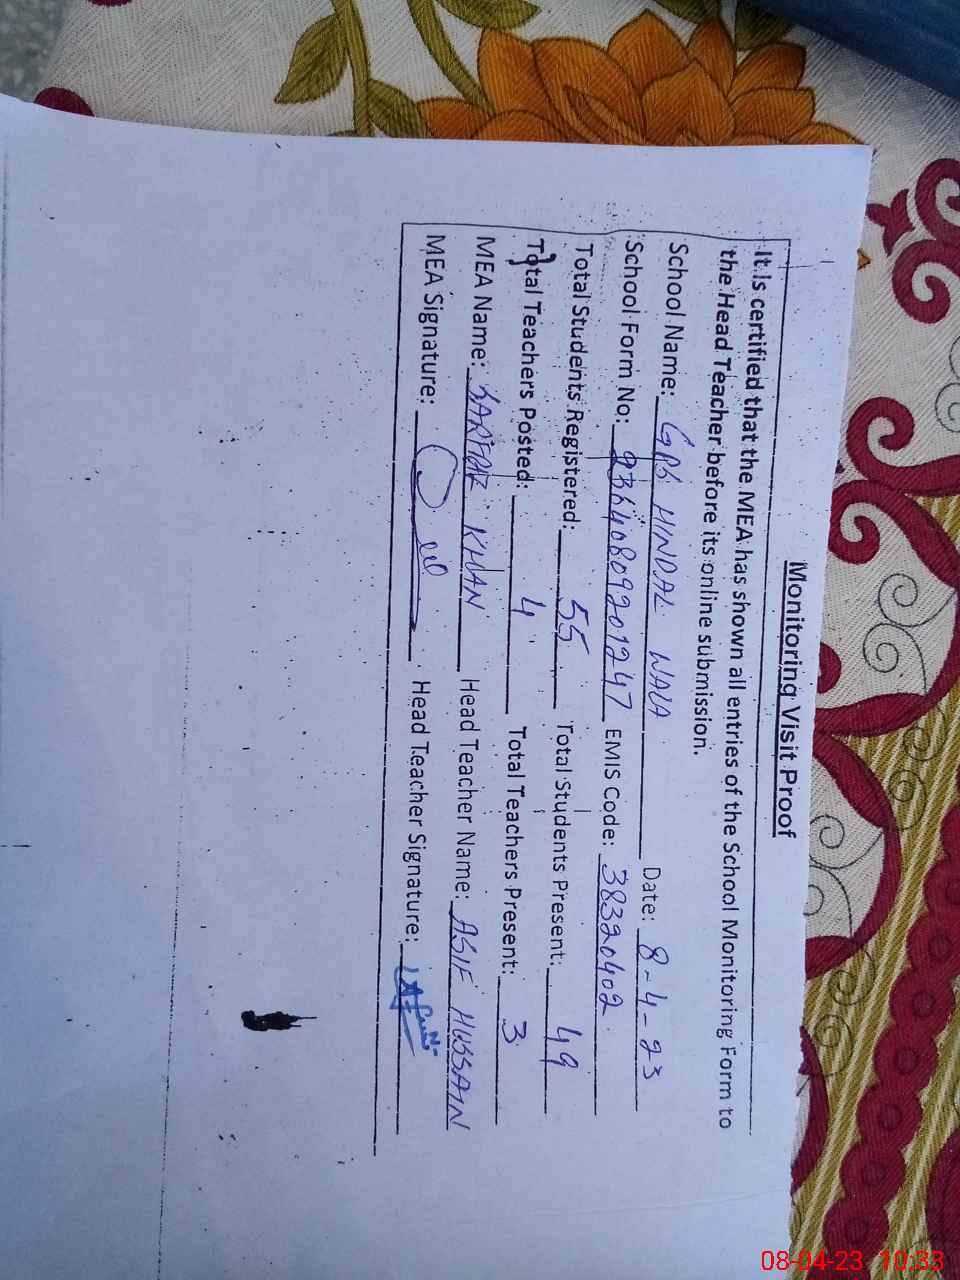 Monitoring Visit Proof
It is certified that the MEA has shown all entries of the School Monitoring Form to
the Head Teacher before its online submission.
School Name: GPS HINDAL WALA Date: 8-4-23
School Form No: 93640809201247 EMIS Code: 38320402
Total Students Registered: 55 Total Students Present: 49
Total Teachers Posted: 4 Total Teachers Present: 3
MEA Name: KHAN Head Teacher Name: ASIF HUSSAIN
MEA Signature: Head Teacher Signature:
08-04-23 10:33